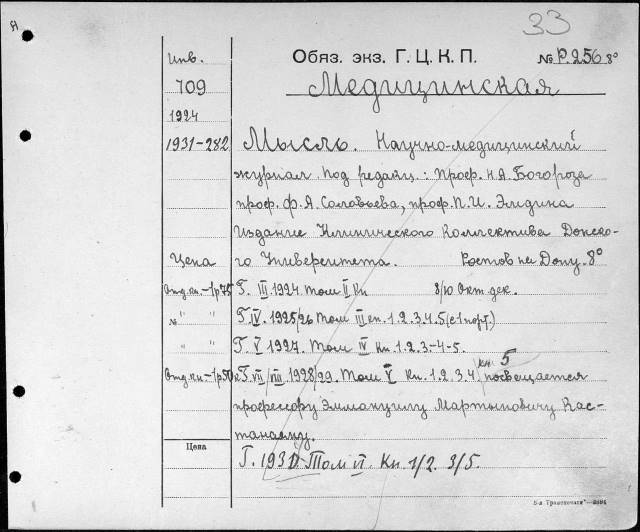 Я
33
Инв.
Обяз. экз. Г. Ц. К. П.
№ Р.256 8°
709
Медицинская
1924
1931-282
Мысль. Научно-медицинский
журнал под редакц.: Проф. Н.А. Богораза
проф. Ф.Я. Соловьева, проф. П.И. Эмдина
Издание Клинического Коллектива Донско-
Цена го Университета. Ростов на Дону. 8°
Отд.кн.-1р75 Г. III 1924 Том II Кн 8/10 Окт дек.
№ " " Г. IV. 1925/26 Том III 1.2.3.4.5 (с 1 порт.)
" " Г. V 1927. Том IV Кн. 1.2.3.-4-5.
Отд.кн-1р50к Г. VII/VIII 1928/29. Том V Кн. 1.2.3.4. кн. 5 (посвещается
профессору Эммануилу Мартыновичу Кас-
танаяну.
Цена
Г. 193 Том VI. Кн 1/2. 3/5.